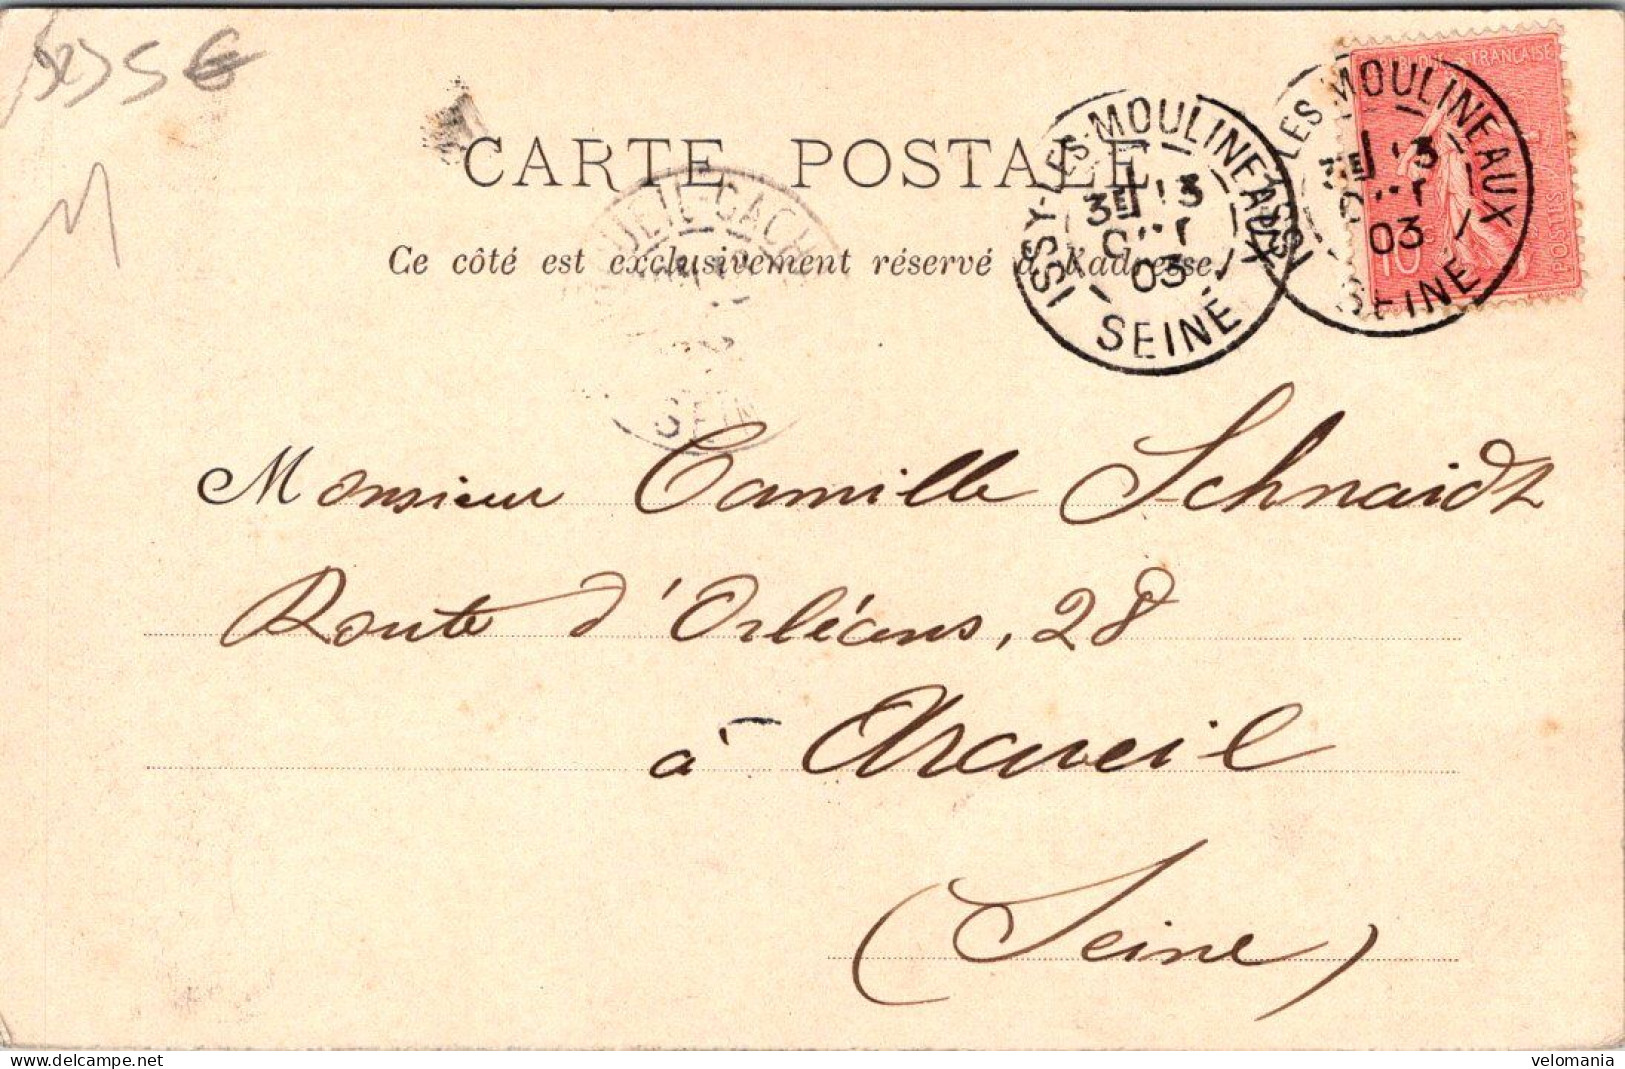 5 €
M
CARTE POSTALE
Ce côté est exclusivement réservé à l'adresse.
RÉPUBLIQUE FRANÇAISE
POSTES
10
ISSY-LES-MOULINEAUX
3E 13
03
SEINE
ISSY-LES-MOULINEAUX
3E 13
03
SEINE
Monsieur Camille Schnaidt
Route d'Orléans, 28
à Arcueil
(Seine)
delcampe.net
velomania